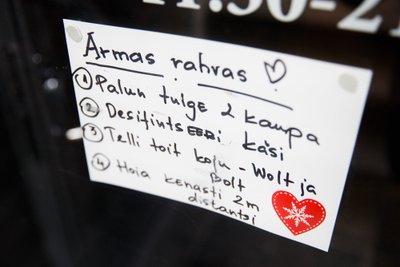 11.30-21
Armas rahvas ♡
① Palun tulge 2 kaupa
② Desifintseeri käsi
③ Telli toit koju - Wolt ja
Bolt
④ Hoia kenasti 2m
distantsi